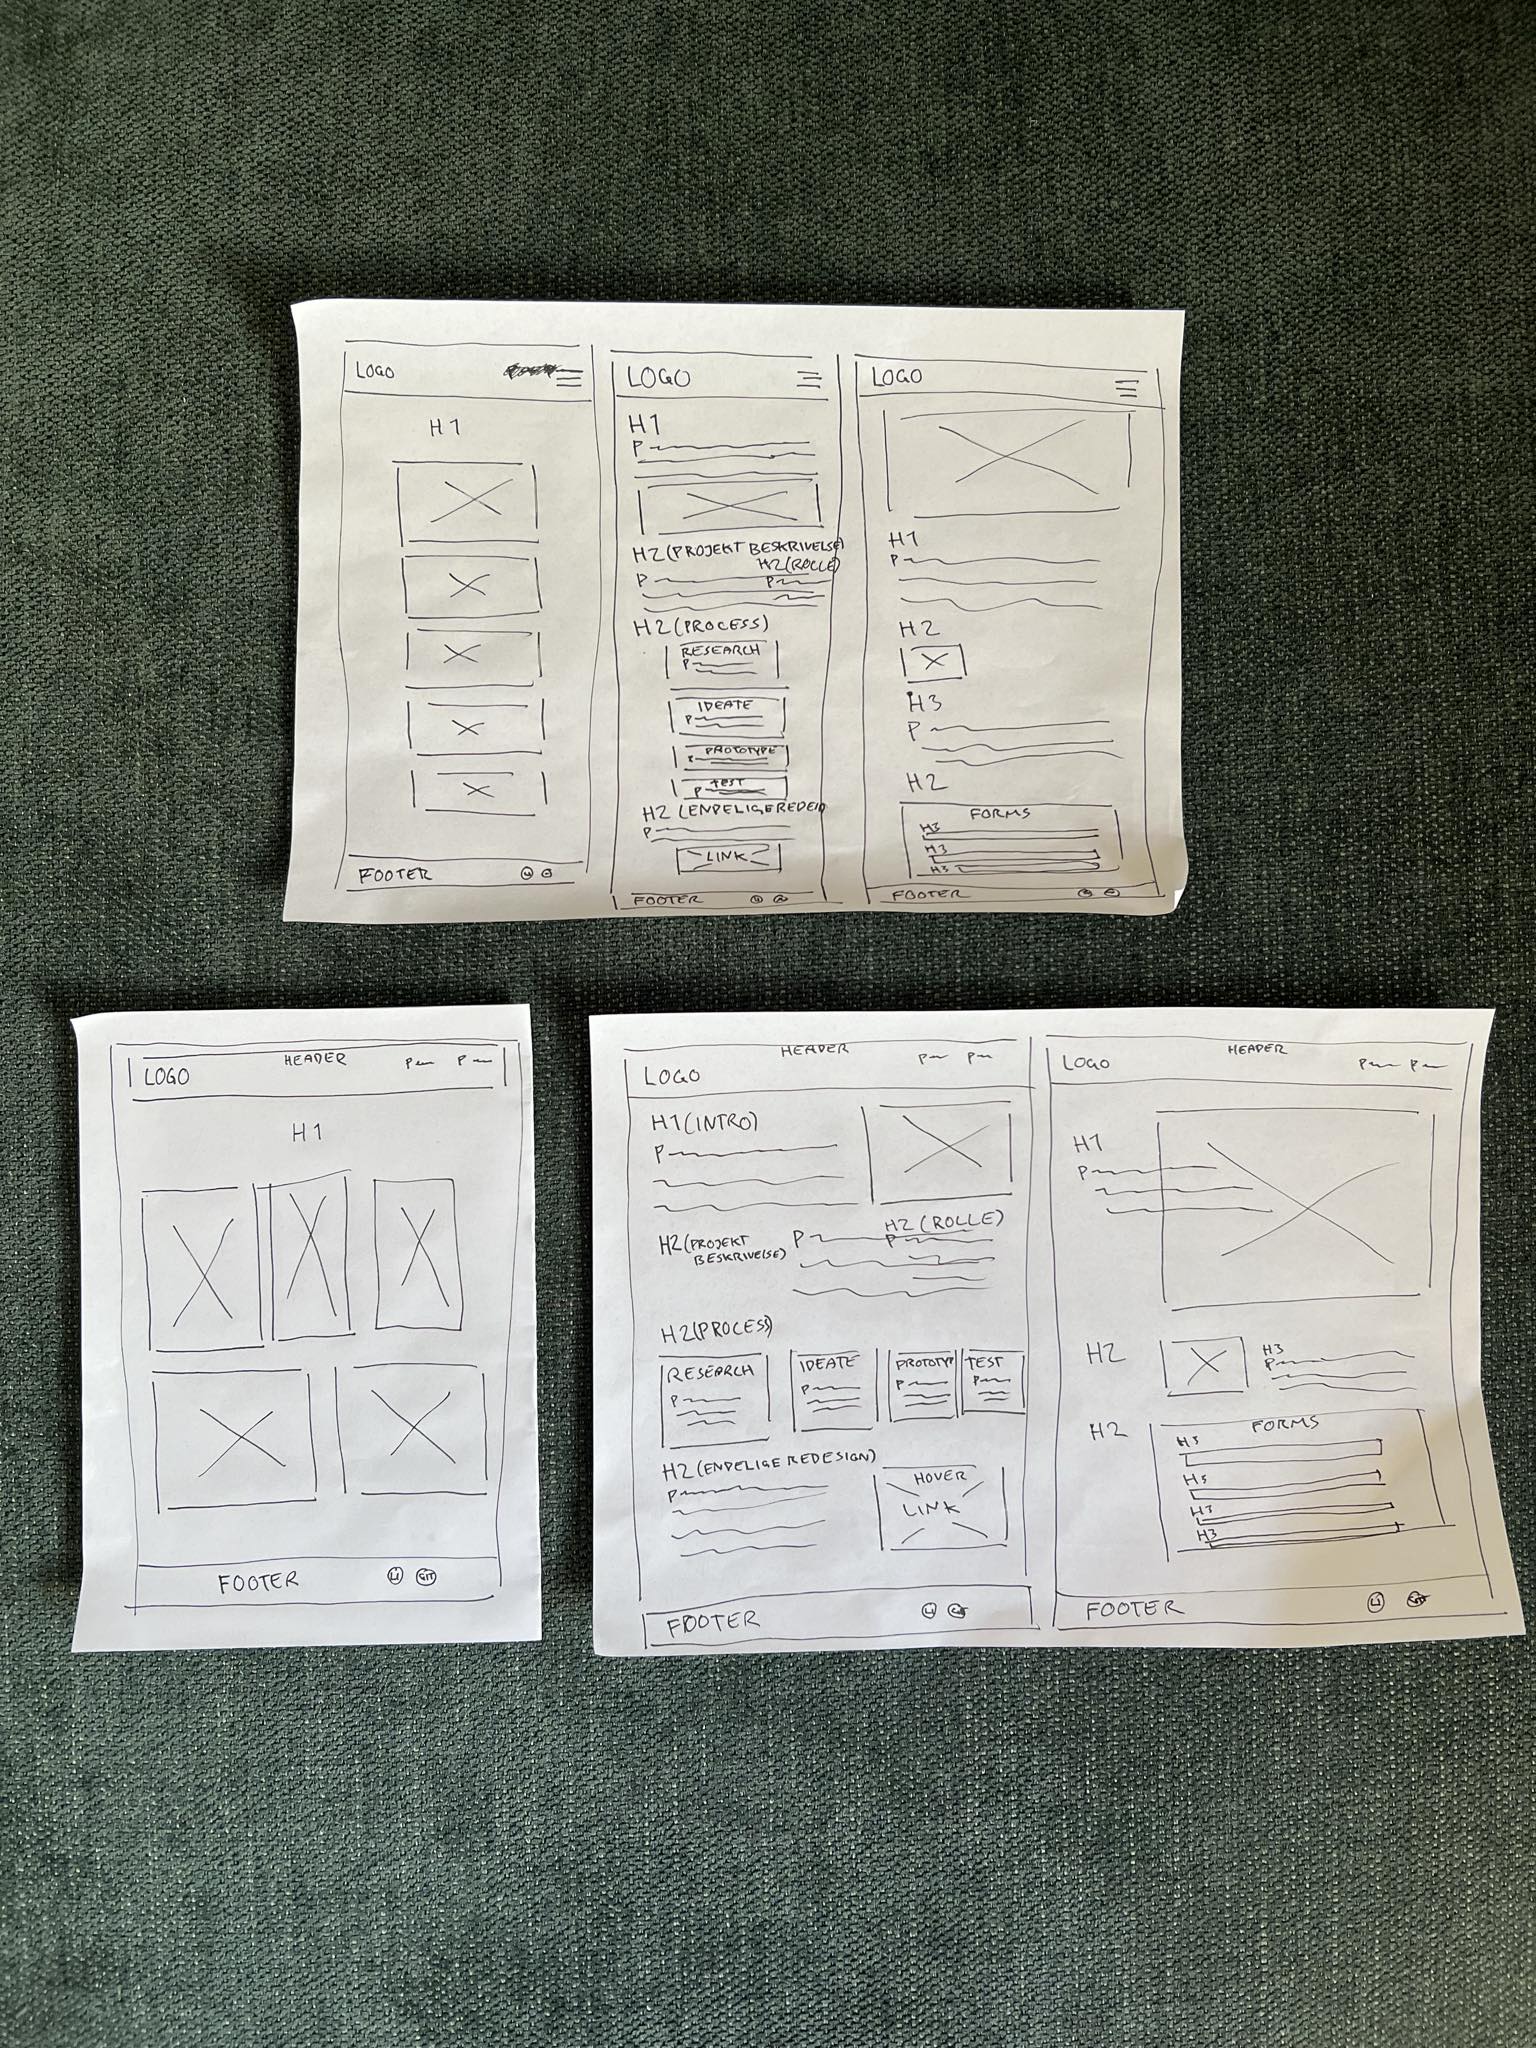 LOGO
H1
FOOTER
LOGO
H1
P
H2 (PROJEKT BESKRIVELSE)
H2 (ROLLE)
P P
H2 (PROCESS)
RESEARCH
P
IDEATE
P
PROTOTYPE
P
TEST
P
H2 (ENDELIGE REDE
P
LINK
FOOTER
LOGO
H1
P
H2
H3
P
H2
FORMS
H3
H3
H3
FOOTER
HEADER P P
LOGO
H1
FOOTER LI GIT
HEADER P P
LOGO
H1 (INTRO)
P
H2 (ROLLE)
H2 (PROJEKT P P
BESKRIVELSE)
H2 (PROCESS)
RESEARCH IDEATE PROTOTYP TEST
P P P P
H2 (ENDELIGE REDESIGN)
P
HOVER
LINK
FOOTER LI
HEADER P P
LOGO
H1
P
H2 H3
P
H2 FORMS
H3
H3
H3
H3
FOOTER LI